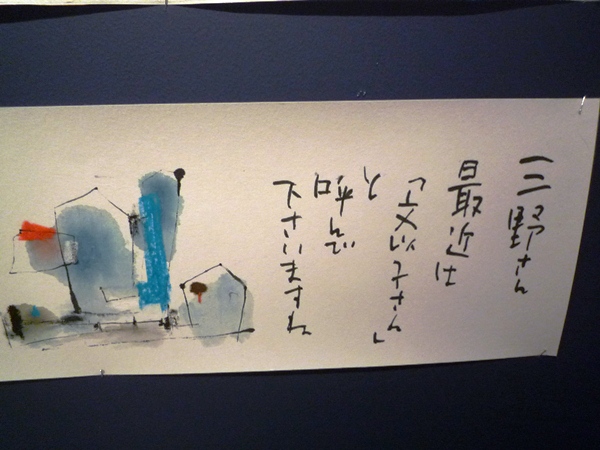 三野さん
最近は
子さん」
と呼んで
下さいますね